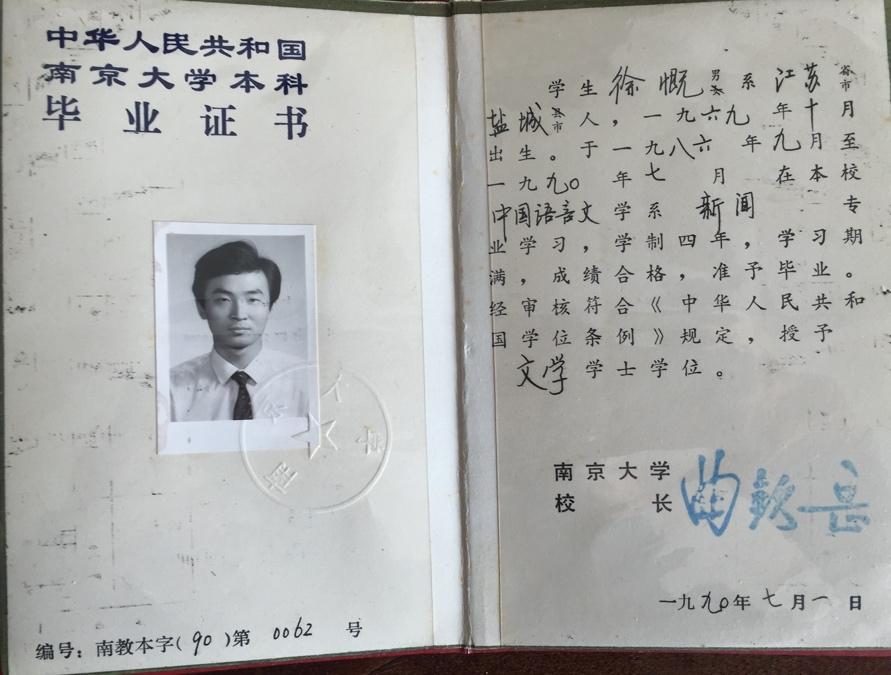 中华人民共和国
南京大学本科
毕业证书
编号：南教本字(90)第 0062 号
学生徐慨 男女 系 江苏 省市
盐城 县市 人，一九六九年十月
出生。于一九八六年九月至
一九九〇年七月在本校
中国语言文学系 新闻 专
业学习，学制四年，学习期
满，成绩合格，准予毕业。
经审核符合《中华人民共和
国学位条例》规定，授予
文学学士学位。
南京大学
校长 曲钦岳
一九九〇年七月一日